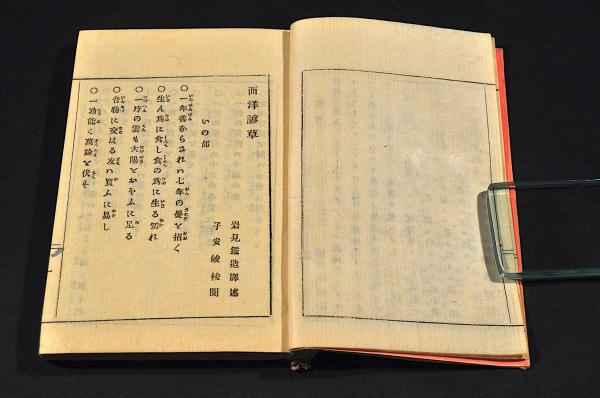 西洋諺草
岩見鑑造譯述
子安峻校閲
いの部
○一年善からざれバ七年の憂を招く
○生ん爲に食し食の爲に生る勿れ
○一片の雲も太陽をおやふに足る
○音物に交はる友ハ買ふに易し
○一功能く萬論を伏す